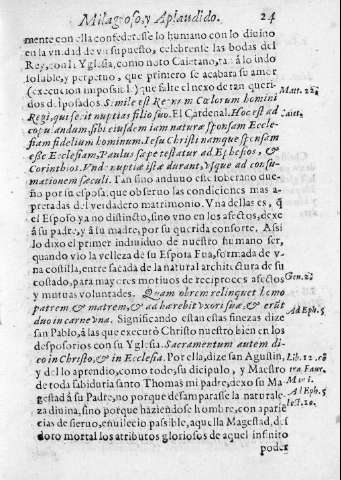 Milagroso, y Aplaudido. 24
mente con ella confederasse lo humano con lo diuino
en la vnidad de vn supuesto, celebrense las bodas del
Rey, con la Yglesia, como noto Caietano, tan à lo indi
soluble, y perpetuo, que primero se acabara su amor
(execucion imposible) que falte el nexo de tan queri-
dos desposados. Simile est Regnum Cælorum homini Matt. 22.
Regi, qui fecit nuptias filio suo. El Cardenal. Hoc est ad Caiet.
copulandum sibi eiusdem iam naturæ sponsam Eccle-
siam fidelium hominum. Iesu Christi namque sponsam
esse Ecclesiam, Paulus sæpe testatur ad Ephesios, &
Corinthios. Vnde nuptiæ istæ durant, vsque ad consu-
mationem sæculi. Tan fino anduuo este soberano due-
ño por su esposa, que obseruo las condiciones mas a-
pretadas del verdadero matrimonio. Vna dellas es, q̃
el Esposo ya no distincto, sino vno en los afectos, dexe
à su padre, y à su madre, por su querida consorte. Assi
lo dixo el primer indiuiduo de nuestro humano ser,
quando vio la velleza de su Esposa Eua, formada de v-
na costilla, entresacada de la natural architectura de su
costado, para mayores motiuos de reciprocos afectos Gen. 2.
y mutuas voluntades. Quam obrem relinquet homo
patrem & matrem, & adhærebit vxori suæ, & erunt
duo in carne vna. Significando estan estas finezas dize Ad Eph. 5
san Pablo, à las que executò Christo nuestro bien en los
desposorios con su Yglesia. Sacramentum autem di-
co in Christo, & in Ecclesia. Por ella, dize san Agustin, Lib. 12.
y dello aprendio, como todo, su dicipulo, y Maestro tra. Faus.
de toda sabiduria santo Thomas mi padre, dexo su Ma
gestad à su Padre, no porque desamparasse la naturale- Ad Eph. 5
za diuina, sino porque haziendose hombre, con aparie lect. 10.
cias de sieruo, enuilecio passible, aquella Magestad, des
doro mortal los atributos gloriosos de aquel infinito
poder